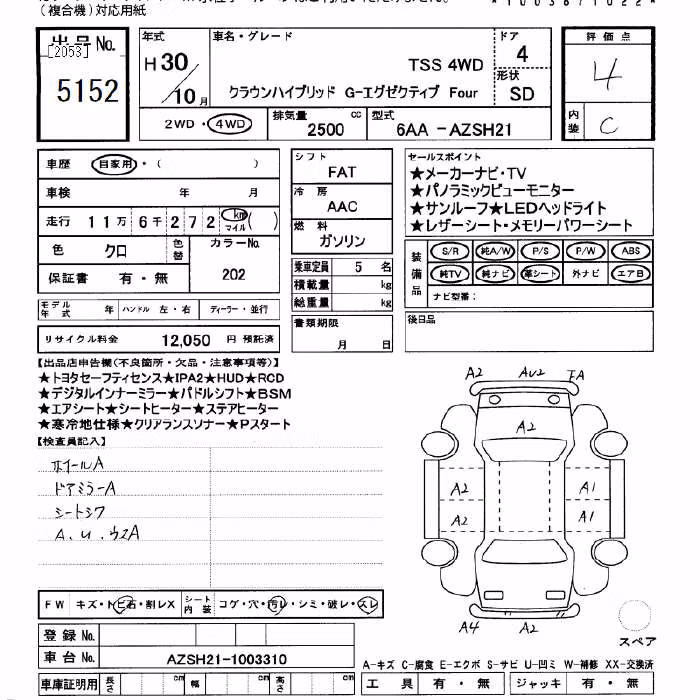 (複合機)対応用紙
出品No.
[2053]
5152
年式 車名・グレード ドア
H30/10月
TSS 4WD 4
クラウンハイブリッド G-エグゼクティブ Four 形状 SD
2WD・4WD 排気量 2500 cc 型式 6AA -AZSH21
評価点
4
内装 C
車歴 自家用・( )
車検 年 月
走行 11万6千272 km マイル( )
色 クロ 色替 カラーNo.
保証書 有・無 202
モデル年式 年 ハンドル 左・右 ディーラー・並行
リサイクル料金 12,050 円 預託済
シフト
FAT
冷房
AAC
燃料
ガソリン
乗車定員 5 名
積載量 kg
総重量 kg
書類期限
月 日
セールスポイント
★メーカーナビ・TV
★パノラミックビューモニター
★サンルーフ★LEDヘッドライト
★レザーシート・メモリーパワーシート
装備品 S/R 純A/W P/S P/W ABS
純TV 純ナビ 革シート 外ナビ エアB
ナビ型番:
後日品
【出品店申告欄(不良箇所・欠品・注意事項等)】
★トヨタセーフティセンス★IPA2★HUD★RCD
★デジタルインナーミラー★パドルシフト★BSM
★エアシート★シートヒーター★ステアヒーター
★寒冷地仕様★クリアランスソナー★Pスタート
【検査員記入】
ホイールA
ドアミラーA
シートシワ
A.U.ウスA
A2 AU2 IA
A2
A2 A1
A2 A1
A4 A2
スペア
FW キズ・トビ石・割レX シート内装 コゲ・穴・汚レ・シミ・破レ・スレ
登録No.
車台No. AZSH21-1003310
車庫証明用 長さ cm 幅 cm 高さ cm
A-キズ C-腐食 E-エクボ S-サビ U-凹ミ W-補修 XX-交換済
工具 有・無 ジャッキ 有・無